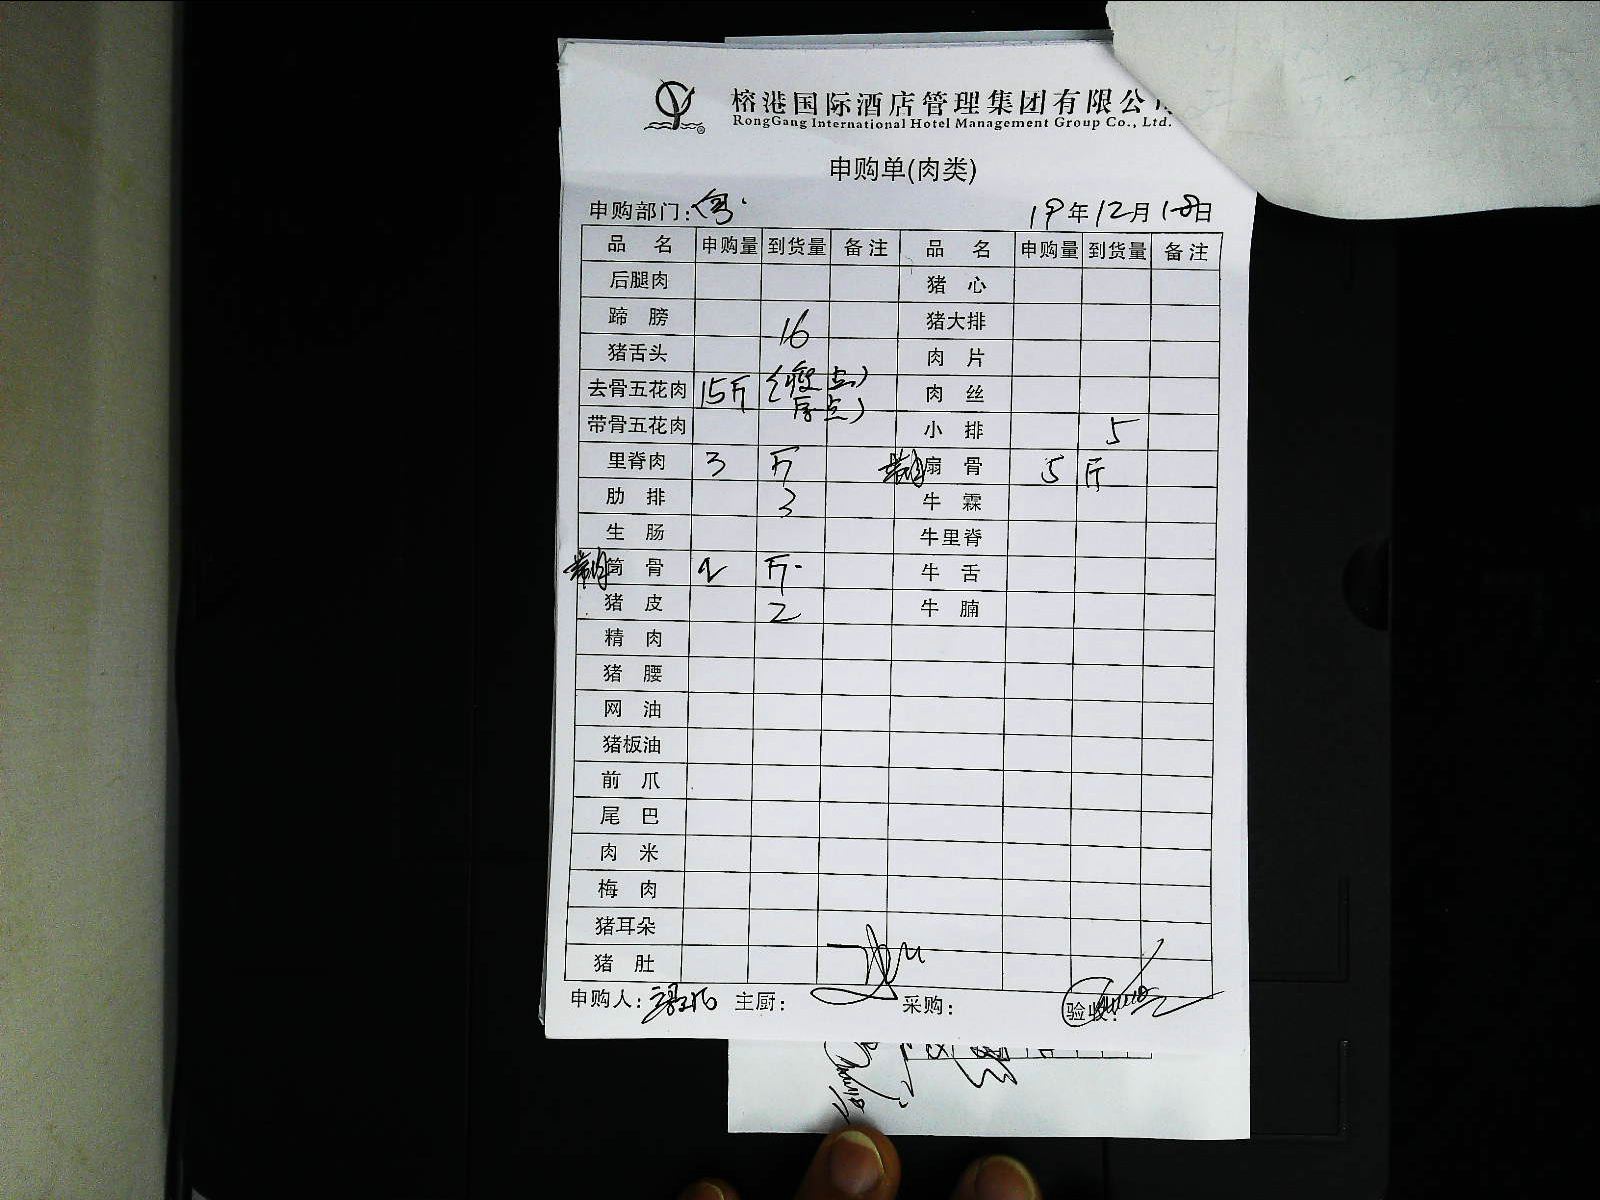 榕港国际酒店管理集团有限公
RongGang International Hotel Management Group Co., Ltd.
申购单(肉类)
申购部门: 19年12月18日
品 名 申购量 到货量 备注 品 名 申购量 到货量 备注
后腿肉 猪 心
蹄 膀 16 猪大排
猪舌头 肉 片
去骨五花肉 15斤 (瘦点) 肉 丝
厚点)
带骨五花肉 小 排 5
里脊肉 3 斤 带肉扇 骨 5 斤
肋 排 3 牛 霖
生 肠 牛里脊
带肉筒 骨 2 斤 牛 舌
猪 皮 2 牛 腩
精 肉
猪 腰
网 油
猪板油
前 爪
尾 巴
肉 米
梅 肉
猪耳朵
猪 肚
申购人: 主厨: 采购: 验收: